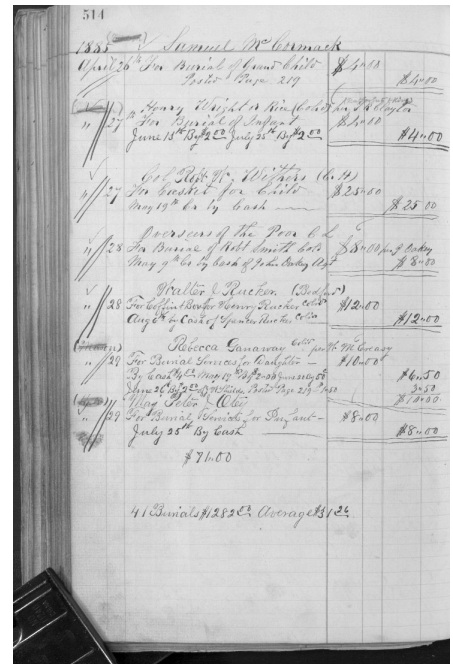 514
1885 Samuel McCormack
April 26th For Burial of Grand Child $4.00
Posted Page 219 $4.00
" 27th Henry Wright or Rice (Cold) per Clayton
For Burial of Infant $4.00
June 13th By $2.00 July 25th By $2.00 $4.00
Col Robt Withers (C.H)
" 27 For Casket for Child $25.00
May 19th Cr by Cash $25.00
Overseers of the Poor C.C.
" 28 For Burial of Robt Smith Cold $8.00 per J Oakey
May 9th Cr by Cash of John Oakey Agt $8.00
Walter J. Rucker. (Bedford)
" 28 For Coffin & Box for Henry Rucker Cold $12.00
Aug 6th by Cash of Spencer Rucker Cold $12.00
Rebecca Ganaway Cold per W. McCreary
" 29 For Burial Services for Daughter $10.00
By Cash May 18th By 2.00 June 50c $6.50
June 26 By 2.00 Page 219 3.50 3.50
Mrs Peter Otey $10.00
" 29 For Burial Services for Infant $8.00
July 25th By Cash $8.00
$71.00
41 Burials $1282.00 Average $31.26